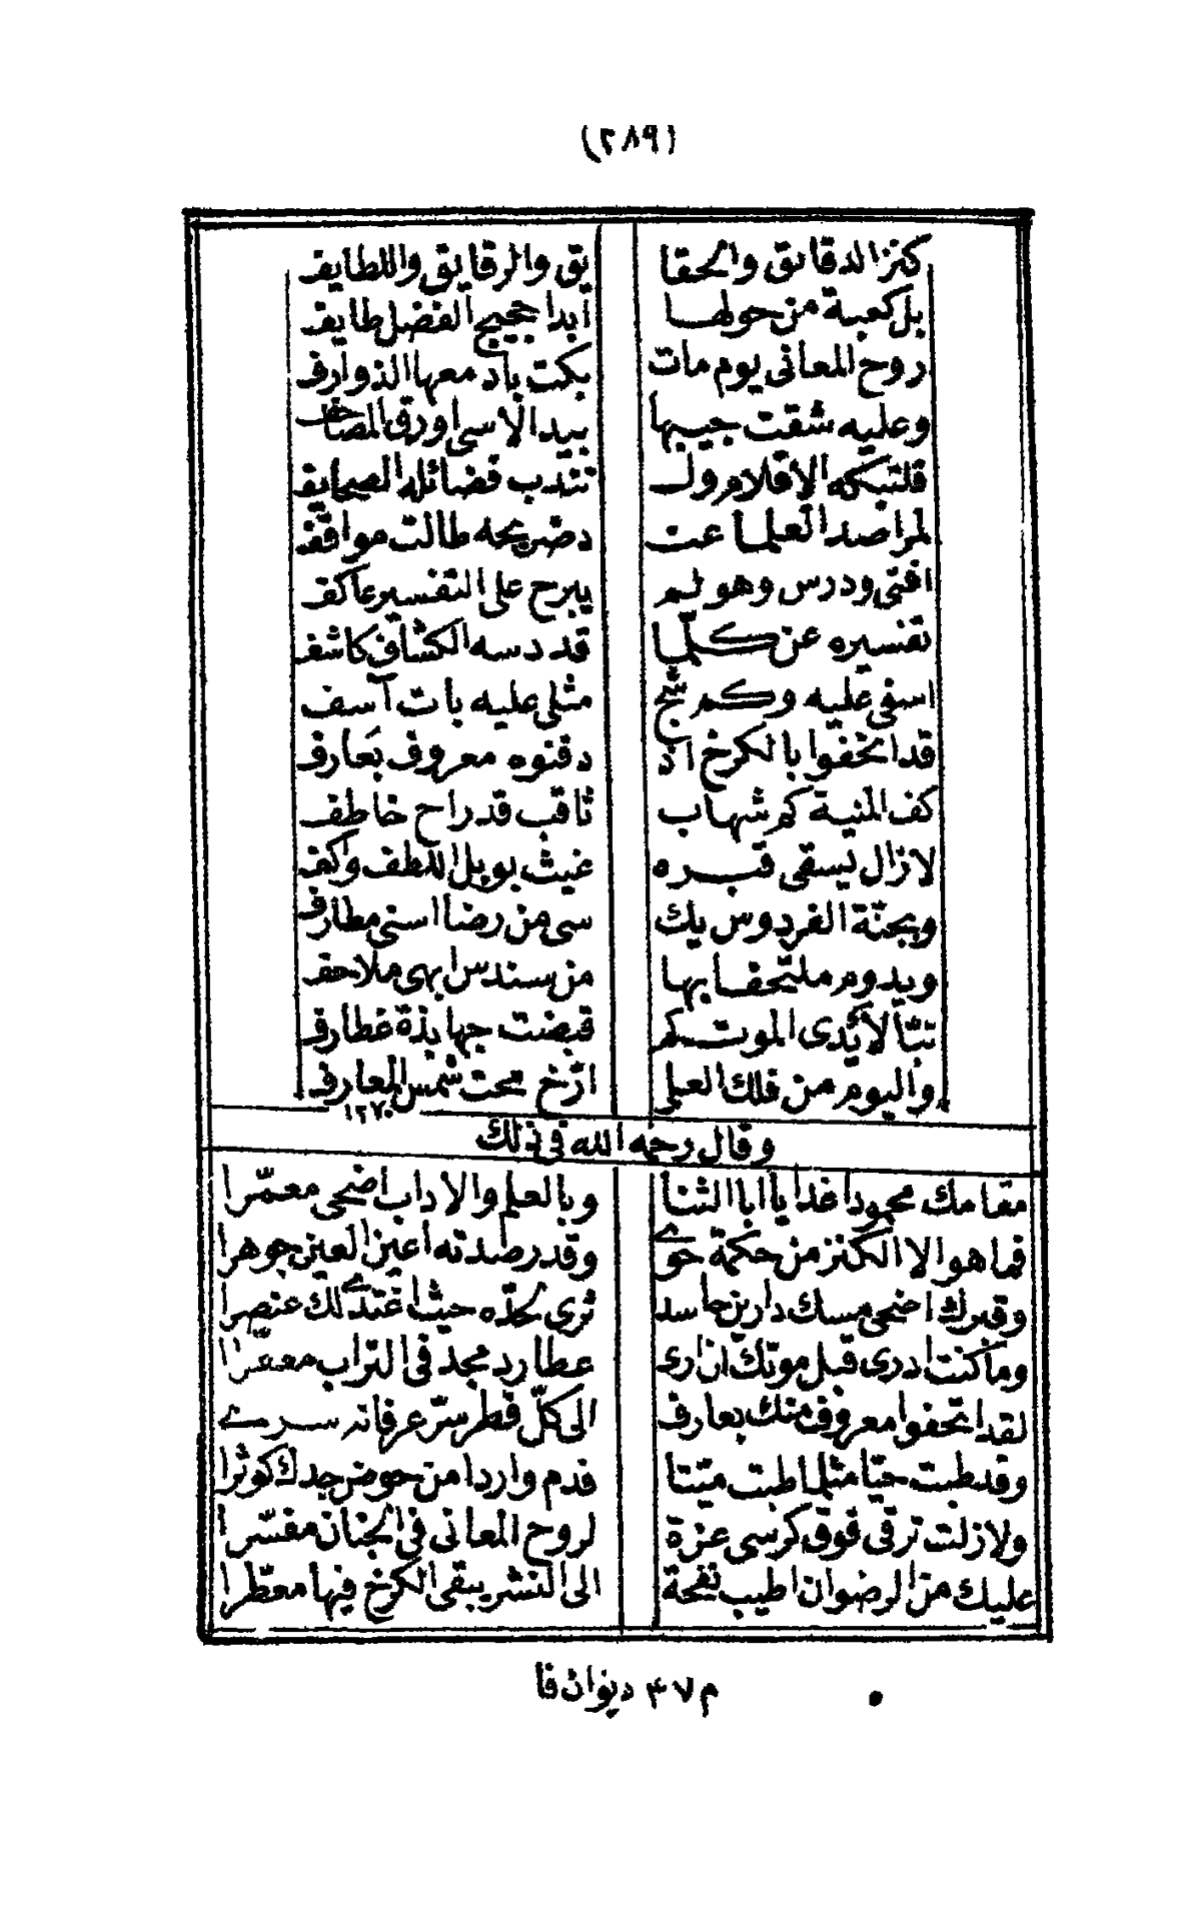 (٢٨٩)
كنز الدقايق والحقا يق والرقايق واللطايف
بل كعبة من حولها أبدا حجيج الفضل طايف
روح المعانى يوم مات بكت بادمعها الذوارف
وعليه شقت جيبها بيد الأسى ورق المصاحف
فلتبكه الاقلام ولـ تندب فضائله الصحايف
لمراصد العلما عت دضريحه طالت مواقف
افتى ودرس وهو لم يبرح على التفسير عاكف
تفسيره عن كلما قد دسه الكشاف كاشف
اسفى عليه وكم شج مثلى عليه بات آسف
قد اتحفوا بالكرخ اذ دفنوه معروف بعارف
كف المنية كم شهاب ثاقب قد راح خاطف
لازال يسقى قبره غيث بوبل اللطف واكف
وبجنّة الفردوس يك سى من رضا اسنى مطارف
ويدوم ملتحفا بها من سندس ابهى ملاحف
تبّا لأيدى الموت كم قبضت جهابذة غطارف
واليوم من فلك العلى ارّخ محت شمس المعارف
١٢٧٠
وقال رحمه الله فى ذلك
مقامك محمودا غدا يا ابا الثنا وبالعلم والاداب اضحى معمّرا
فما هو الا الكنز من حكمة حوے وقد رصدته اعين العين جوهرا
وقبرك اضحى مسك دارين حاسد ثرى لحده حيث اغتدے لك عنصرا
وما كنت ادرى قبل موتك ان ارى عطارد مجد فى التراب معفّرا
لقد اتحفوا معروف منك بعارف الى كلّ قطر سرّ عرفانه سرے
وقد طبت حيّا مثلما طبت ميّتا فدم واردا من حوض جدك كوثرا
ولازلت ترقى فوق كرسى عزة لروح المعانى فى الجنان مفسّرا
عليك من الرضوان اطيب نفحة الى النشر يبقى الكرخ فيها معطّرا
م ٤٧ ديوان فا